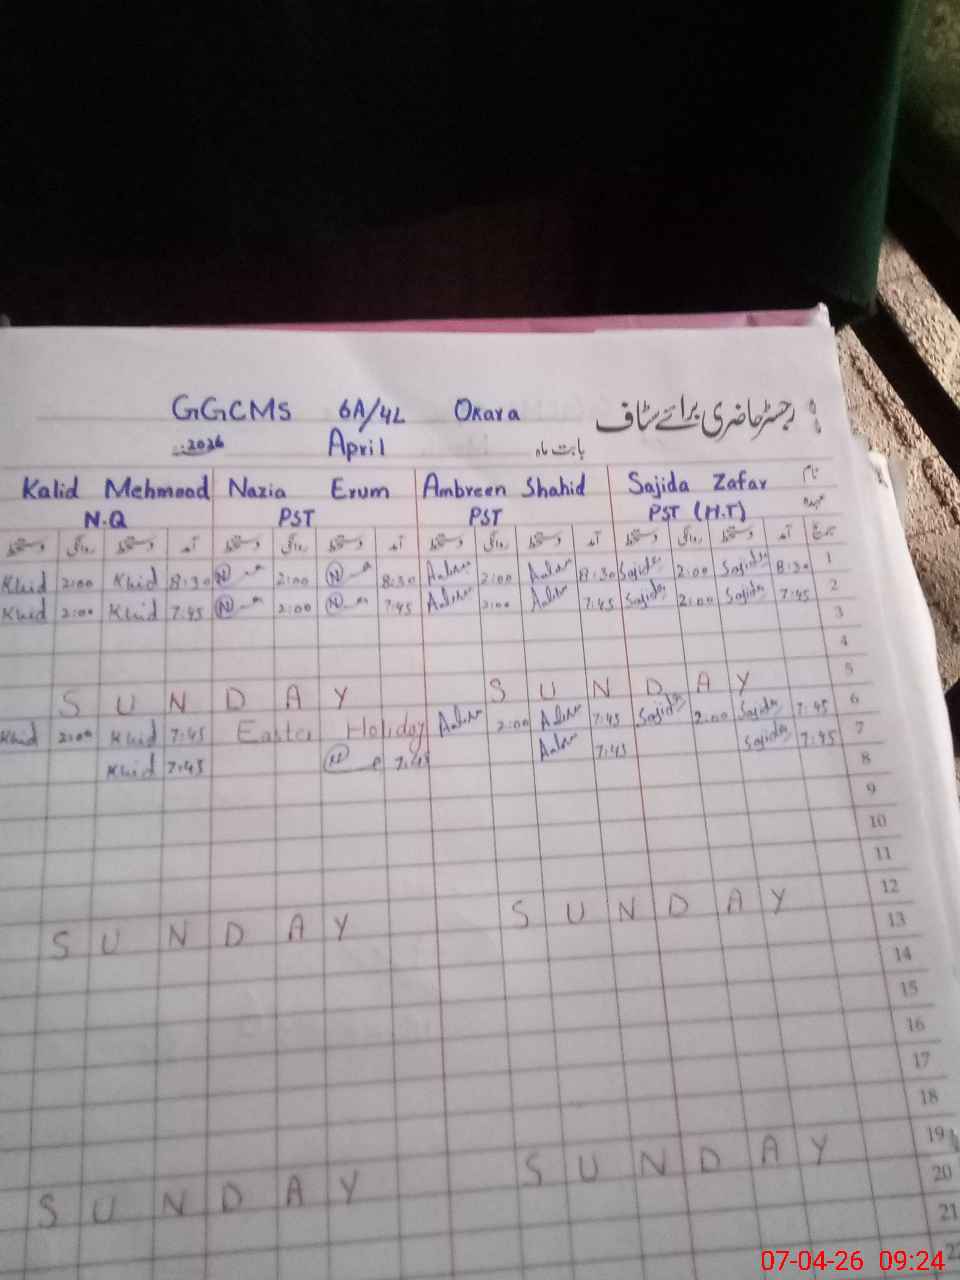 رجسٹر حاضری برائے سٹاف
GGCMS 6A/4L Okara
بابت ماہ April 2026
نام
Kalid Mehmood Nazia Erum Ambreen Shahid Sajida Zafar
عہدہ
N.Q PST PST PST (H.T)
دستخط روانگی دستخط آمد دستخط روانگی دستخط آمد دستخط روانگی دستخط آمد دستخط روانگی دستخط آمد تاریخ
Khid 2:00 Khid 8:30 2:00 8:30 2:00 8:30 Sajida 2:00 Sajida 8:30 1
Khid 2:00 Khid 7:45 2:00 7:45 2:00 7:45 Sajida 2:00 Sajida 7:45 2
3
4
SUNDAY SUNDAY 5
Khid 2:00 Khid 7:45 Easter Holiday 2:00 7:45 Sajida 2:00 Sajida 7:45 6
Khid 7:45 7:45 7:45 Sajida 7:45 7
8
9
10
11
SUNDAY SUNDAY 12
13
14
15
16
17
18
SUNDAY SUNDAY 19
20
21
22
07-04-26 09:24